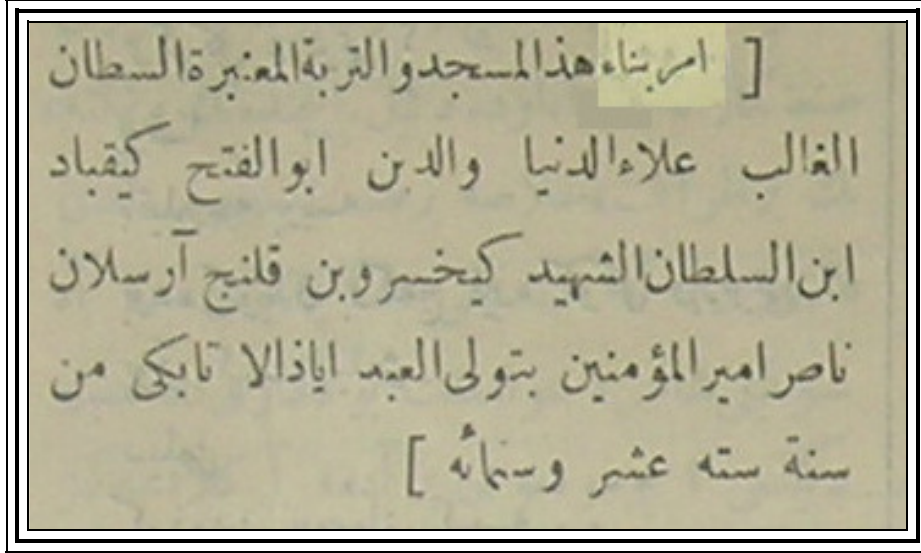 [ امر بناء هذالمسجدو التربةالمعنبرةالسطان
الغالب علاءالدنيا والدين ابوالفتح كيقباد
ابن السلطان الشهيد كيخسروبن قلنج آرسلان
ناصر اميرالمؤمنين بتولى العبد اياذالا تابكى من
سنة سته عشر وستمائه ]